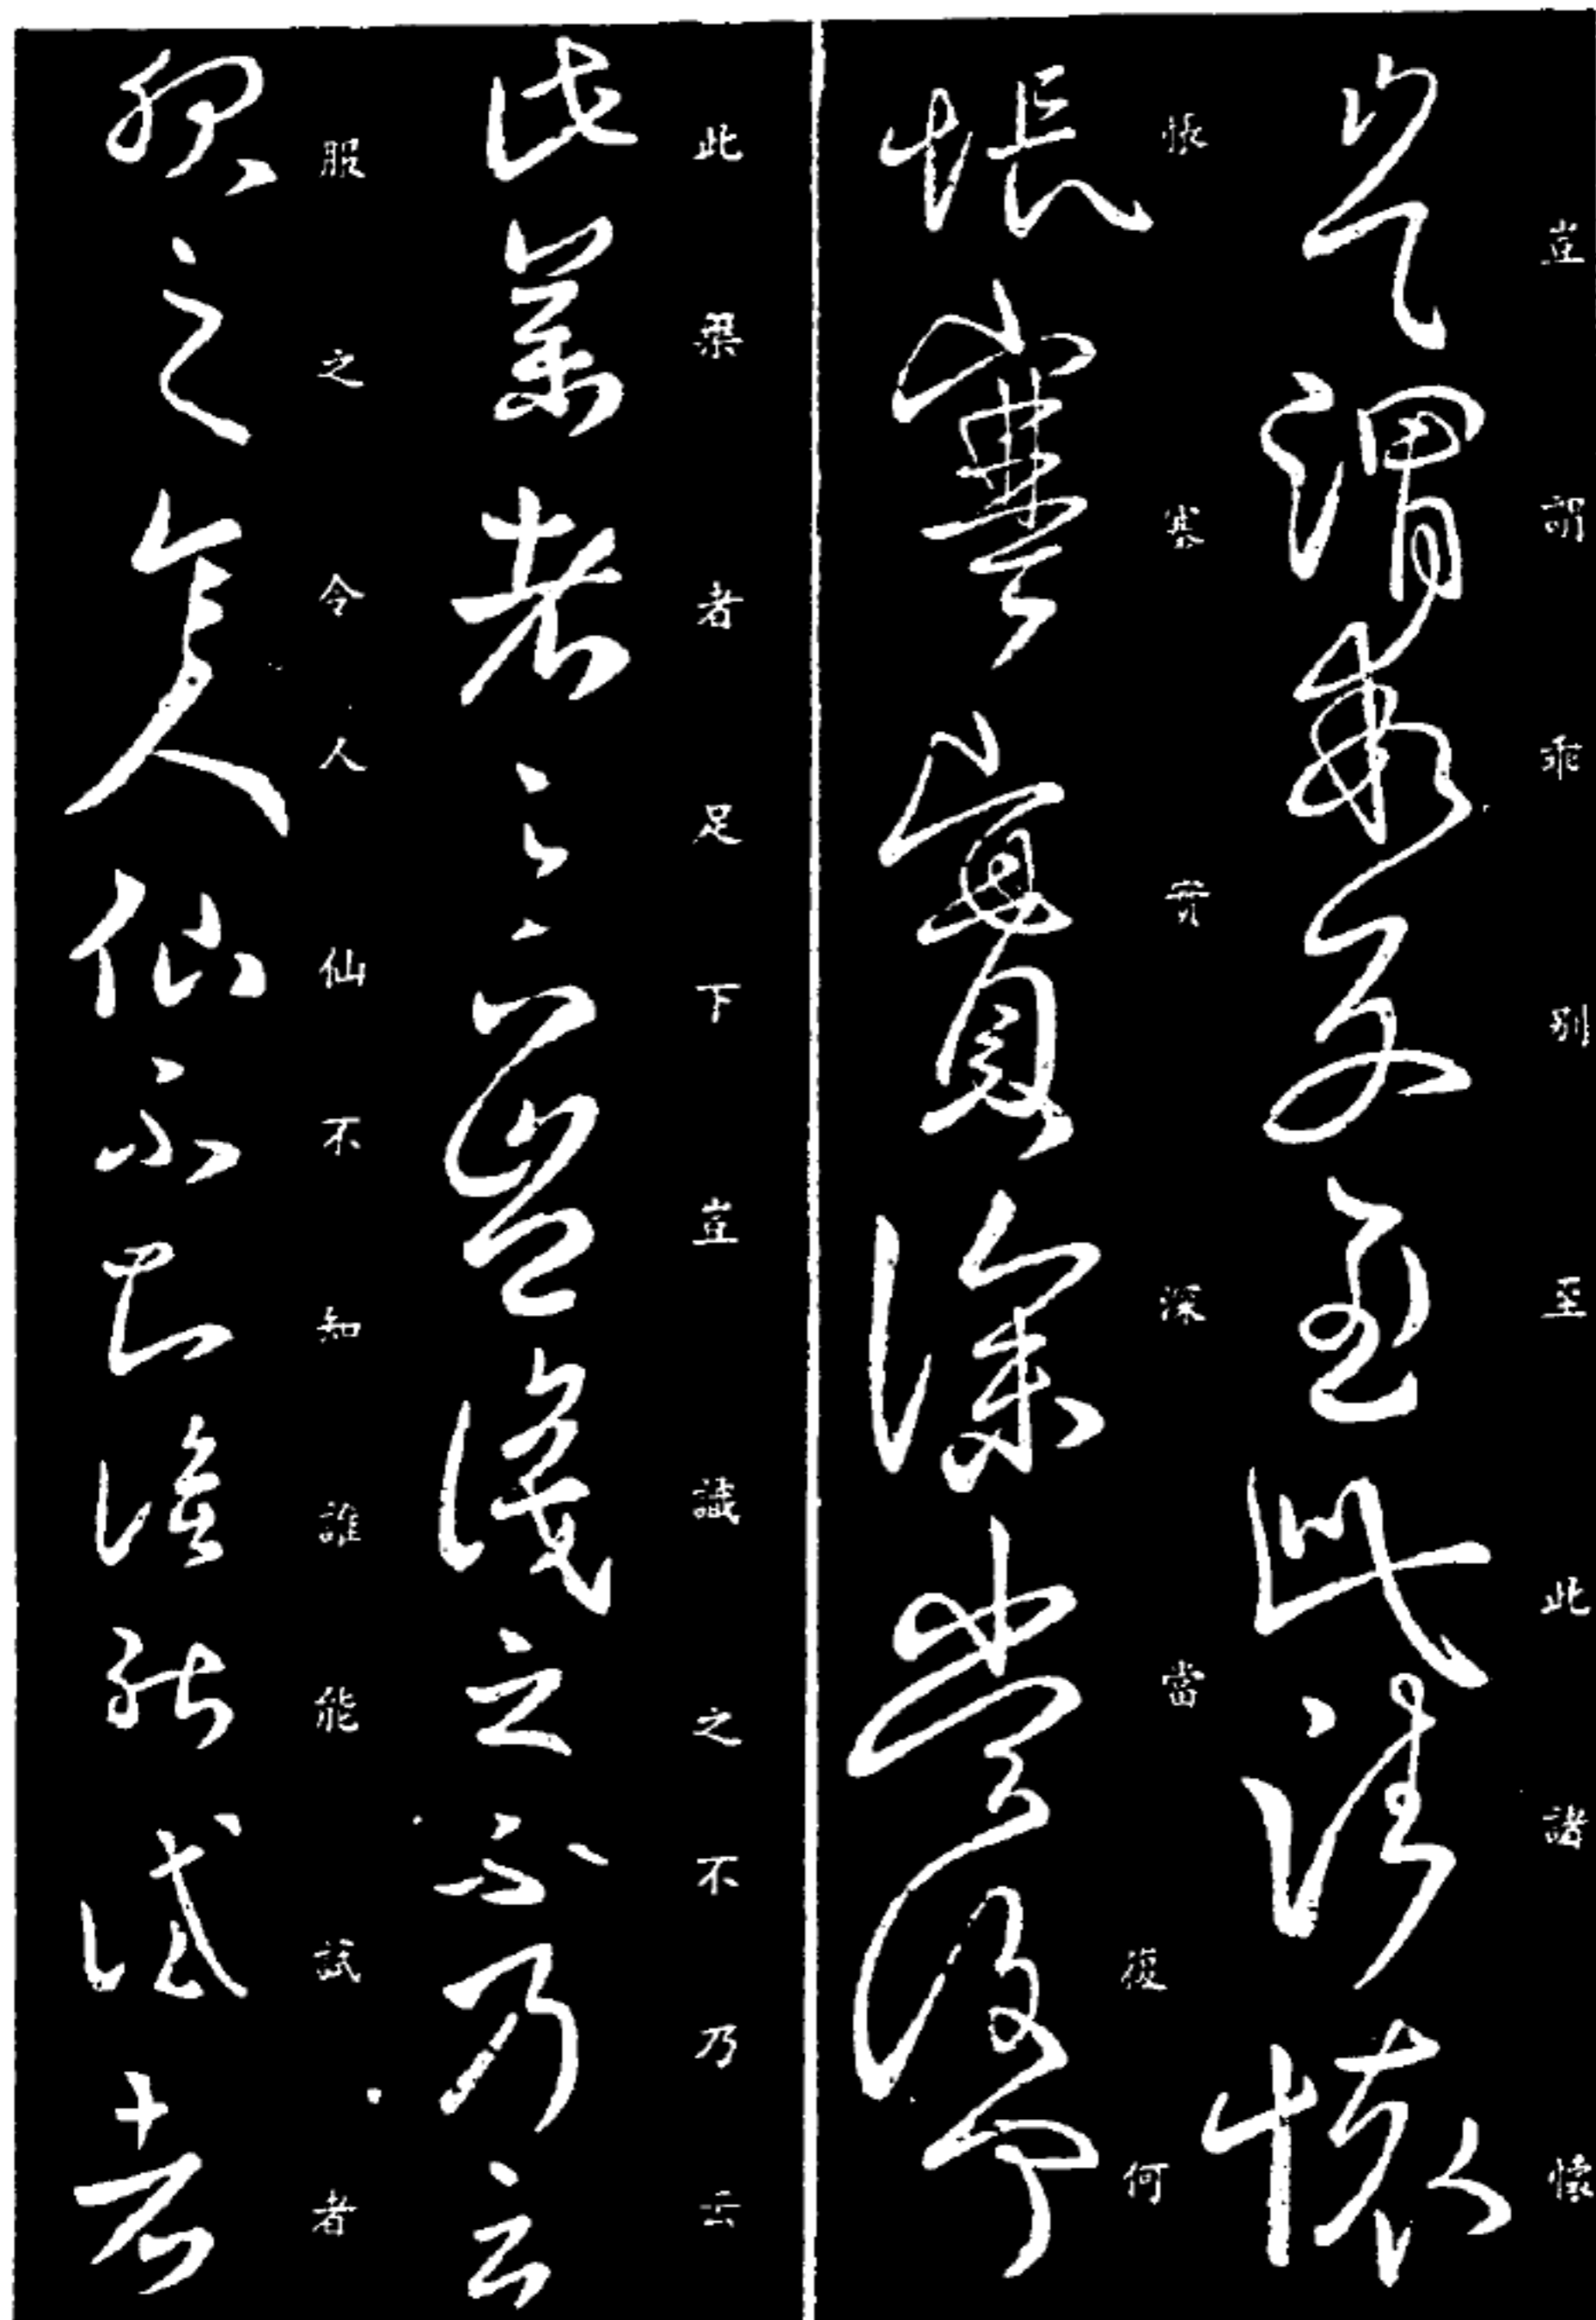 豈謂乖別至此諸懷
豈謂乖別至此諸懷
悵塞實深當復何
悵塞實深當復何
此藥者足下豈識之不乃云
此藥者足下豈識之不乃云
服之令人仙不知誰能試者
服之令人仙不知誰能試者